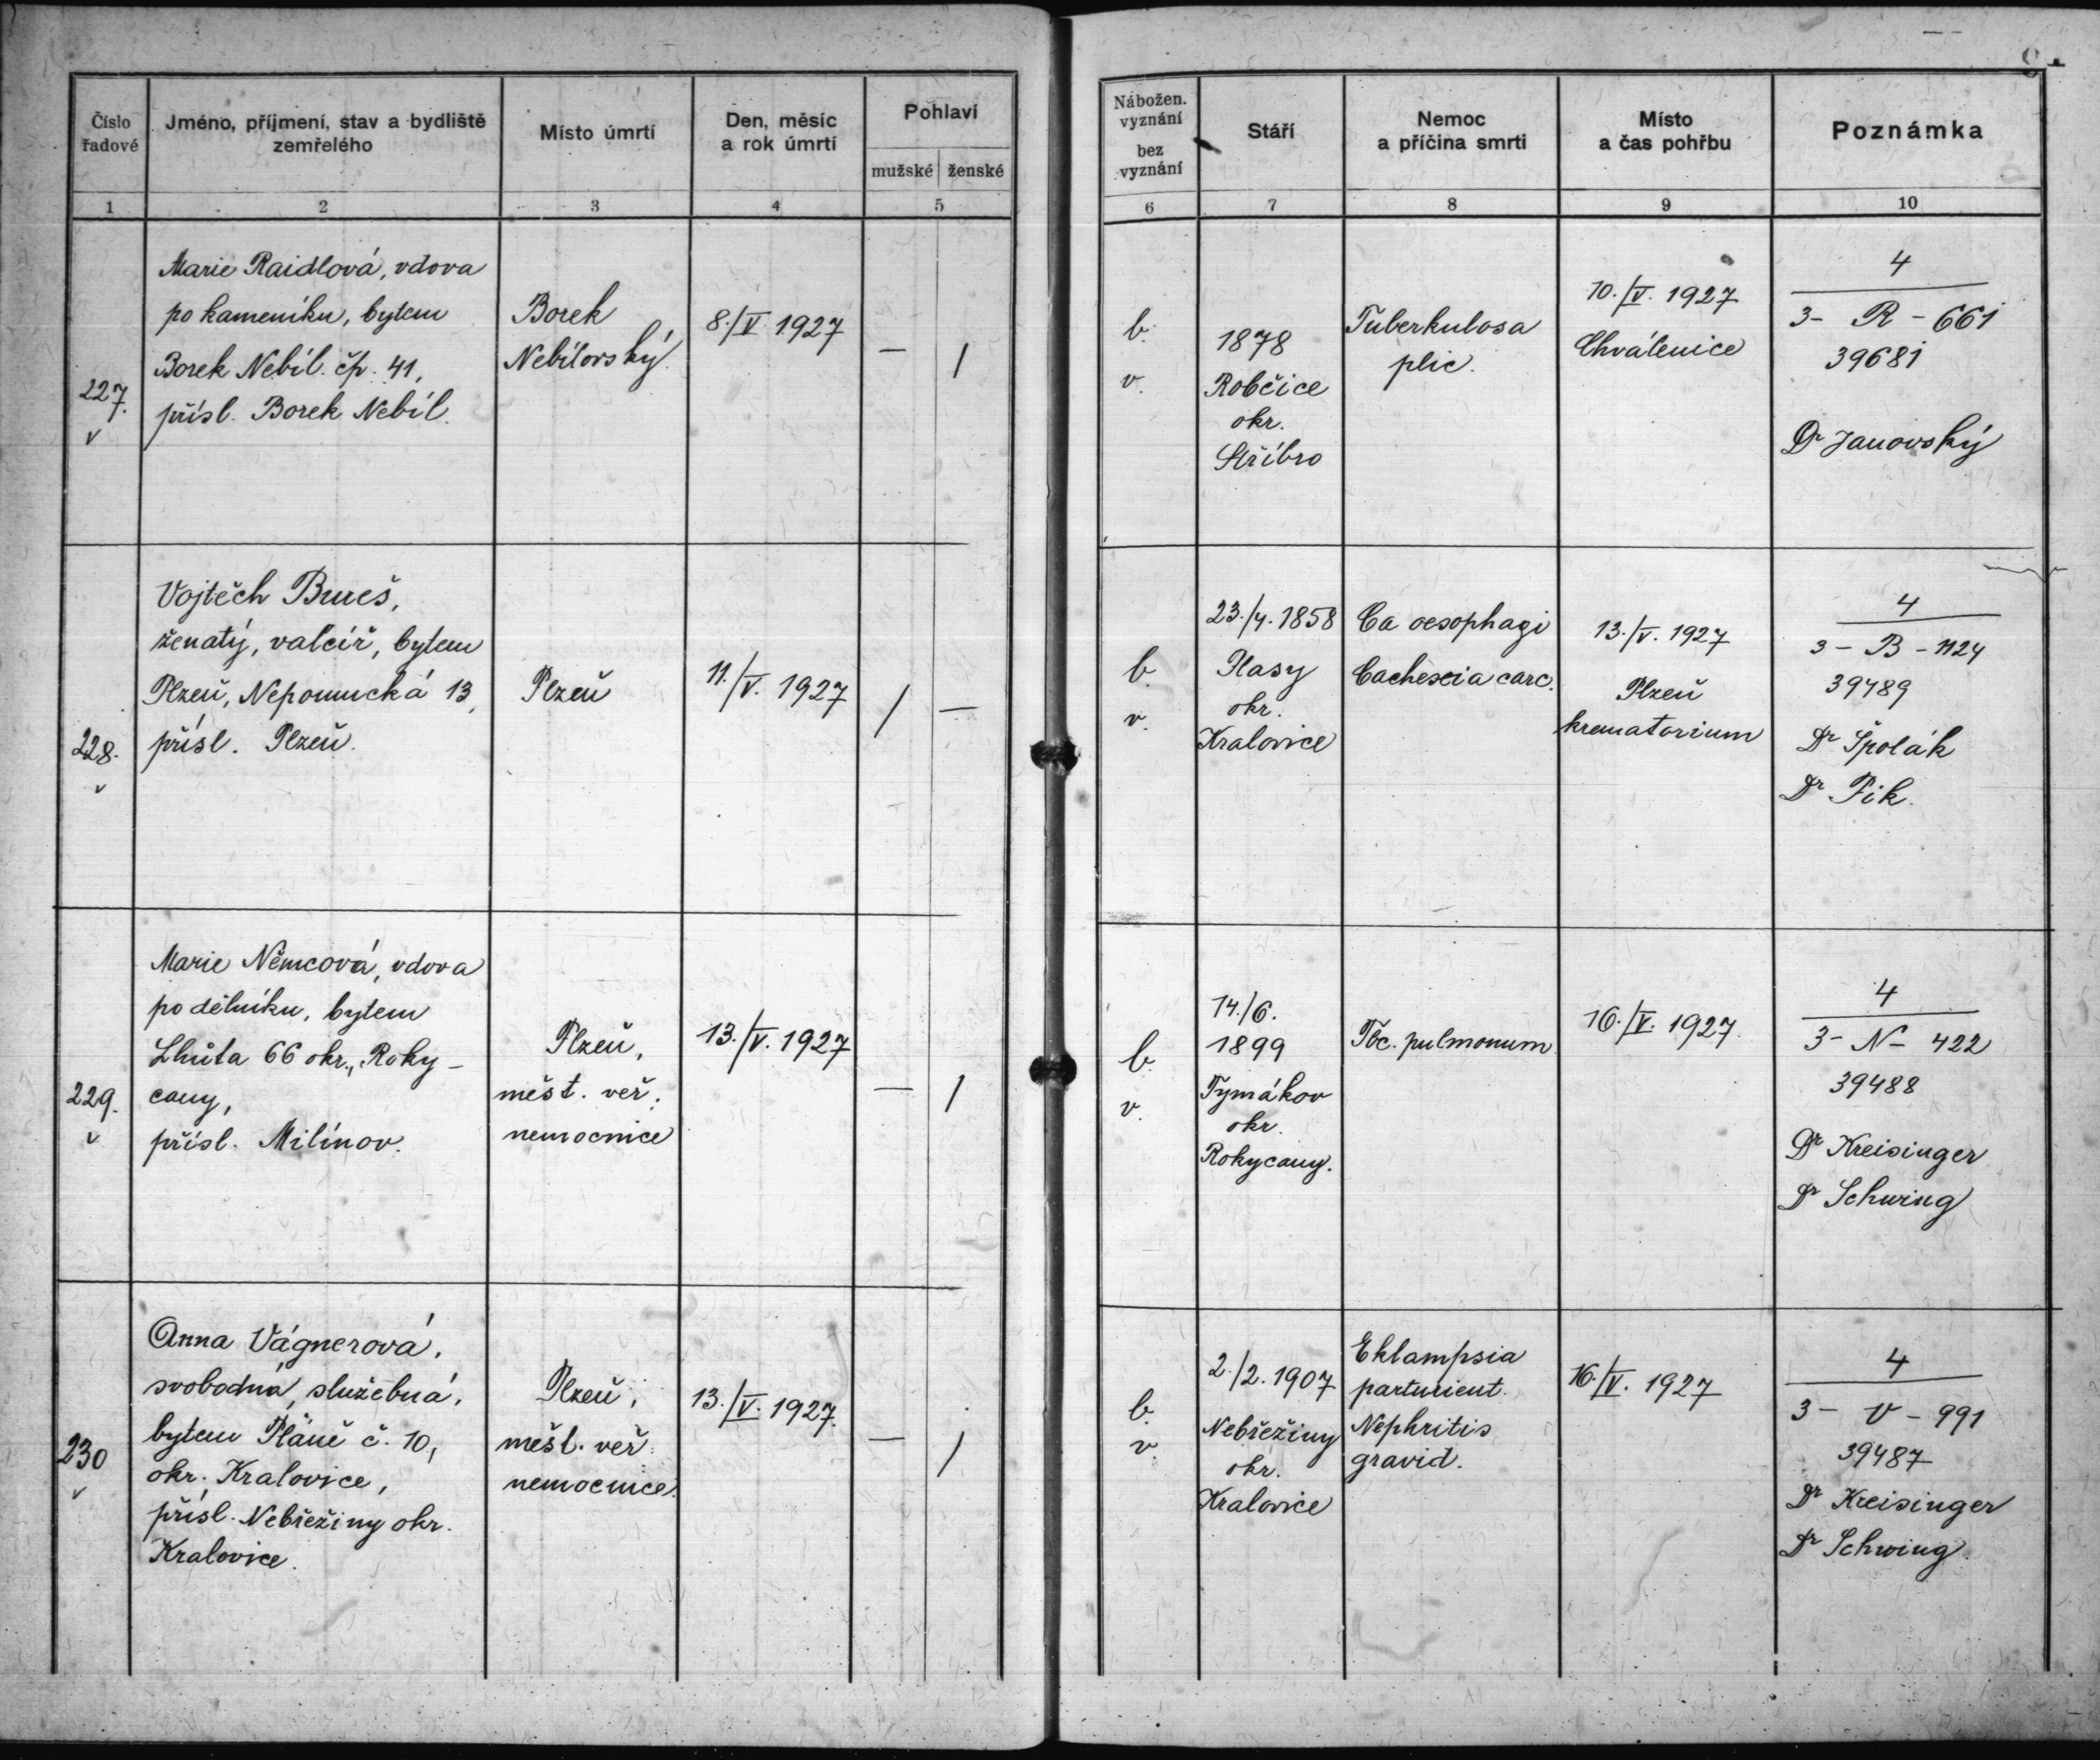 Číslo řadové
Jméno, příjmení, stav a bydliště zemřelého
Místo úmrtí
Den, měsíc a rok úmrtí
Pohlaví
mužské
ženské
Nábožen. vyznání
bez vyznání
Stáří
Nemoc a příčina smrti
Místo a čas pohřbu
Poznámka
1
2
3
4
5
6
7
8
9
10
227.
v
Marie Raidlová, vdova
po kameníku, bytem
Borek Nebíl. čp. 41,
přísl. Borek Nebíl.
Borek
Nebílovský.
8./V. 1927
—
/
b.
v.
1878
Robčice
okr.
Stříbro
Tuberkulosa
plic.
10./V. 1927
Chválenice
4
3- R - 661
39681
Dr Janovský
228.
v
Vojtěch Bureš,
ženatý, valcíř, bytem
Plzeň, Nepomucká 13,
přísl. Plzeň.
Plzeň
11./V. 1927
/
—
b.
v.
23./4. 1858
Plasy
okr.
Kralovice
Ca oesophagi
Cachexia carc.
13./V. 1927
Plzeň
krematorium
4
3 - B - 1124
39489
Dr Špolák
Dr Pik.
229.
v
Marie Němcová, vdova
po dělníku, bytem
Lhůta 66 okr. Roky-
cany,
přísl. Milínov.
Plzeň,
měst. veř.
nemocnice
13./V. 1927
—
/
b.
v.
14./6.
1899
Tymákov
okr.
Rokycany.
Tbc. pulmonum
16./V. 1927.
4
3- N - 422
39488
Dr Kreisinger
Dr Schwing
230
v
Anna Vágnerová,
svobodná, služebná,
bytem Pláně č. 10,
okr. Kralovice,
přísl. Nebřežiny okr.
Kralovice.
Plzeň,
měst. veř.
nemocnice.
13./V. 1927.
—
/
b.
v.
2./2. 1907
Nebřežiny
okr.
Kralovice
Eklampsia
parturient.
Nephritis
gravid.
16./V. 1927
4
3 - V - 991
39487
Dr Kreisinger
Dr Schwing.